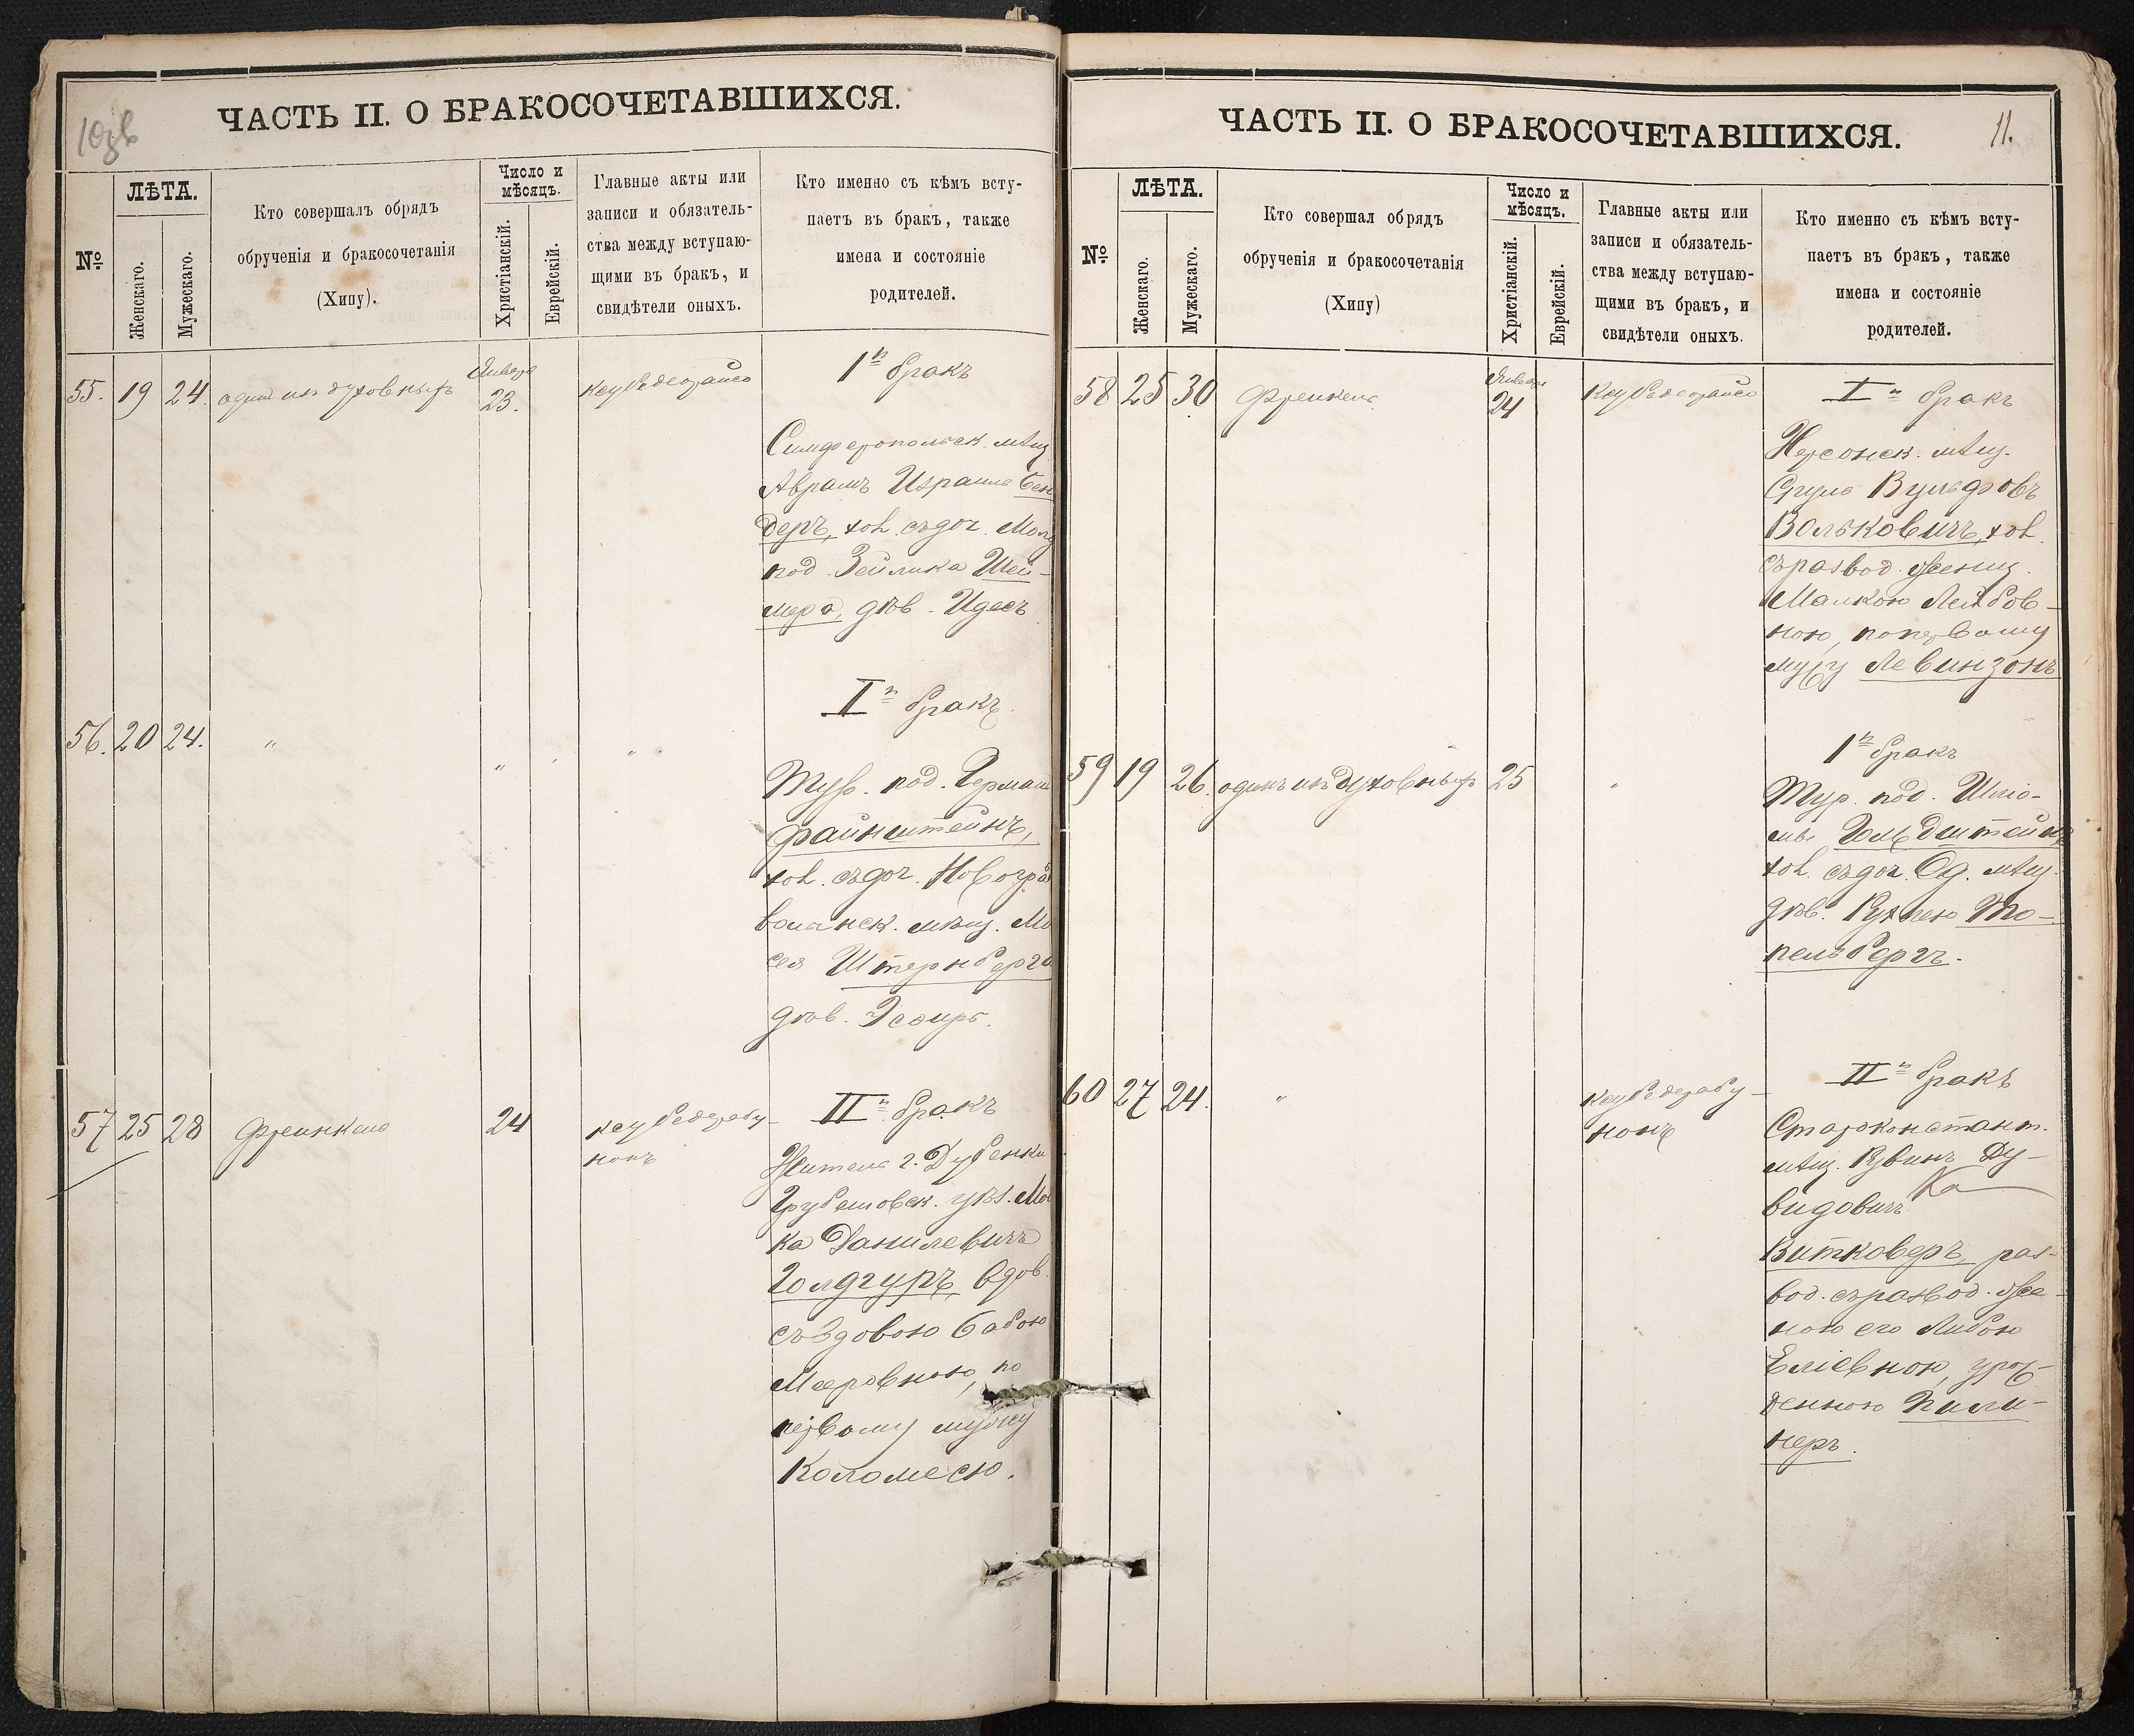 10об
ЧАСТЬ II. О БРАКОСОЧЕТАВШИХСЯ.
№
ЛѢТА.
Женскаго.
Мужескаго.
Кто совершалъ обрядъ
обрученія и бракосочетанія
(Хипу).
Число и
мѣсяцъ.
Христіанскій.
Еврейскій.
Главные акты или
записи и обязатель-
ства между вступаю-
щими въ бракъ, и
свидѣтели оныхъ.
Кто именно съ кѣмъ всту-
паетъ въ бракъ, также
имена и состояніе
родителей.
55. 19 24. одинъ изъ духовныхъ Января 23.
1й бракъ
Симферопольск. мѣщ.
Абрамъ Израиль Бен
деръ, хол. съ доч. Молд
под. Зейлика Шей-
мера, дѣв. Идесъ
56. 20 24. " " "
Iй бракъ.
Тур. под. Герман
Файнштейнъ,
хол. съ доч. Новогра
волынск. мѣщ. Мо
сея Штернберга
дѣв. Эсфирь.
57 25 28 Френкель 24
IIй бракъ
Житель г. Дубенки
Грубешовск. уѣз. Мо
ка Данилевичъ
Голдгуръ, вдов.
съ вдовою Бабою
Мееровною, по
первому мужу
Коломею.
ЧАСТЬ II. О БРАКОСОЧЕТАВШИХСЯ.
11.
№
ЛѢТА.
Женскаго.
Мужескаго.
Кто совершал обрядъ
обрученія и бракосочетанія
(Хипу)
Число и
мѣсяцъ.
Христіанскій.
Еврейскій.
Главные акты или
записи и обязатель-
ства между вступаю-
щими въ бракъ, и
свидѣтели оныхъ.
Кто именно съ кѣмъ всту-
паетъ въ бракъ, также
имена и состояніе
родителей.
58 25 30 Френкель Января 24
Iй бракъ
Херсонск. мѣщ.
Сруль Вульфовъ
Вольковичъ, хол.
съ развод. женщ.
Малкою Лейбов-
ною, по первому
мужу Левинзонъ
59 19 26. одинъ изъ духовныхъ 25 "
1й бракъ
Тур. под. Шло-
мы Гольдштейнъ
хол. съ доч. Од. мѣщ.
дѣв. Рухлею То-
пельбергъ.
60 27 24. "
IIй бракъ
Староконстант.
мѣщ. Рувинъ Ду-
видовичъ Ка
Витковеръ, раз-
вод. съ развод. же-
ною его Либою
Еліевною, урож-
денною Пили-
черъ.